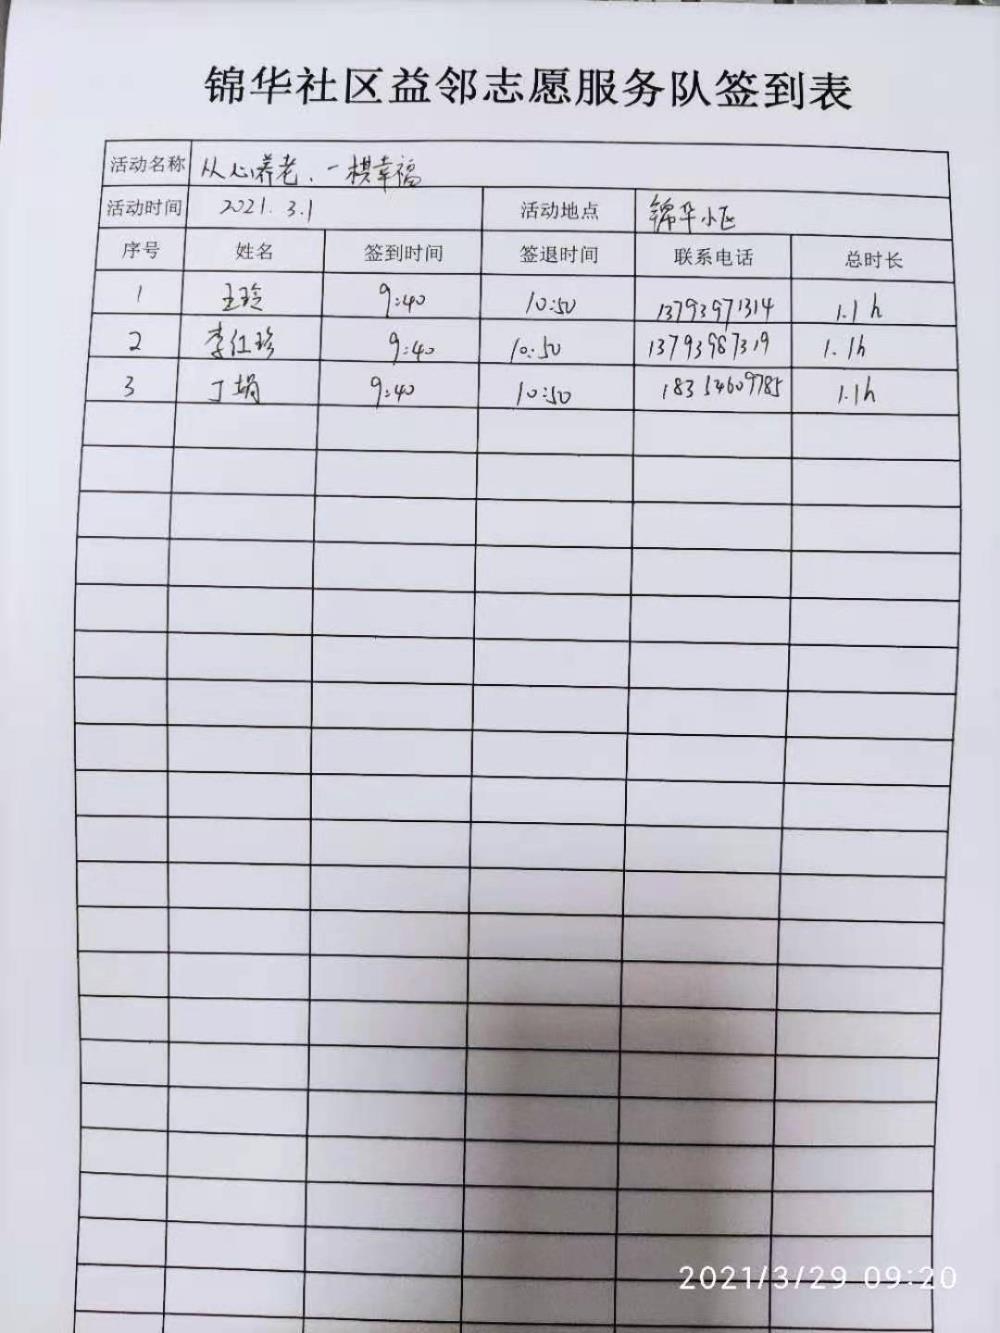 锦华社区益邻志愿服务队签到表
活动名称 从心养老、一棋幸福
活动时间 2021.3.1 活动地点 锦华小区
序号 姓名 签到时间 签退时间 联系电话 总时长
1 王玲 9:40 10:50 13793971314 1.1h
2 李红珍 9:40 10:50 13793987319 1.1h
3 丁娟 9:40 10:50 18354609785 1.1h
2021/3/29 09:20